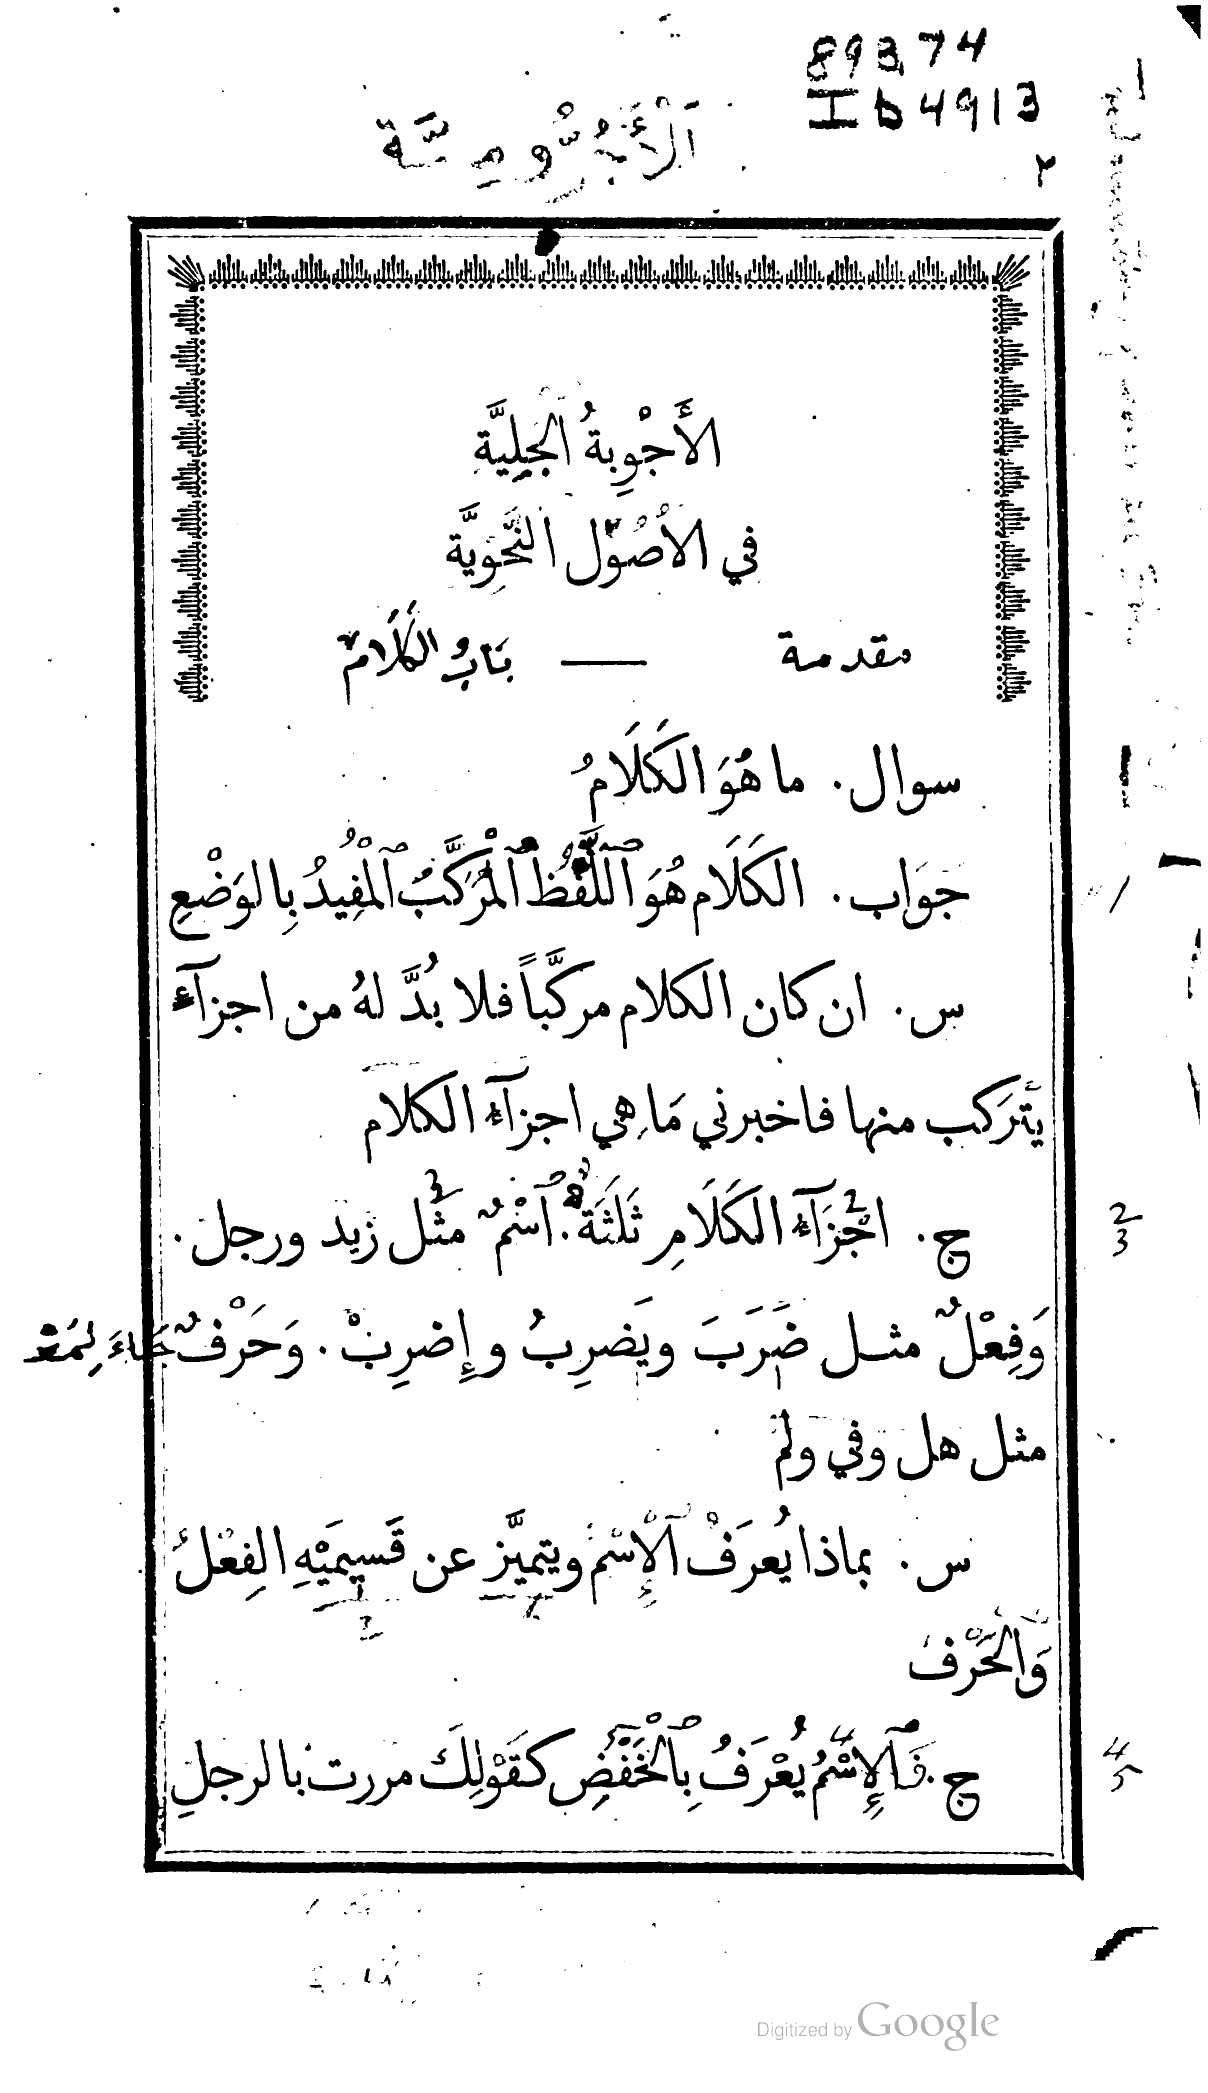 893.74
Ib4913
اَلْأَجُرُّومِيَّة
٢
الأَجْوِبةُ الجَلِيَّة
في الأُصُول النَّحْوِيَّة
مقدمة — بَابُ الكَلَام
سوال . ما هُوَ الكَلَامُ
جوَاب . الكَلَام هُوَ ٱللَّفْظُ ٱلْمُرَكَّبُ ٱلْمُفِيدُ بِالوَضْعِ
س . ان كان الكلام مركَّباً فلا بُدَّ لهُ من اجزآءٍ
يتركب منها فاخبرني مَا هِي اجزآءُ الكلام
ج . اجْزَآءُ الكَلَامِ ثَلَثَةٌ . ٱسْمٌ مثل زيد ورجل .
وَفِعْلٌ مثل ضَرَبَ ويَضرِبُ وإِضرِبْ . وَحَرْفٌ جَاءَ لِمَعْنًى
مثل هل وفي ولم
س . بماذا يُعرَفْ ٱلْإِسْمُ ويتميَّز عن قَسيمَيْهِ الفِعْلُ
وَالْحَرْف
ج . فَٱلإِسْمُ يُعْرَفُ بِٱلْخَفْضِ كقَوْلِكَ مررت بالرجلِ
2
3
4
5
Digitized by Google